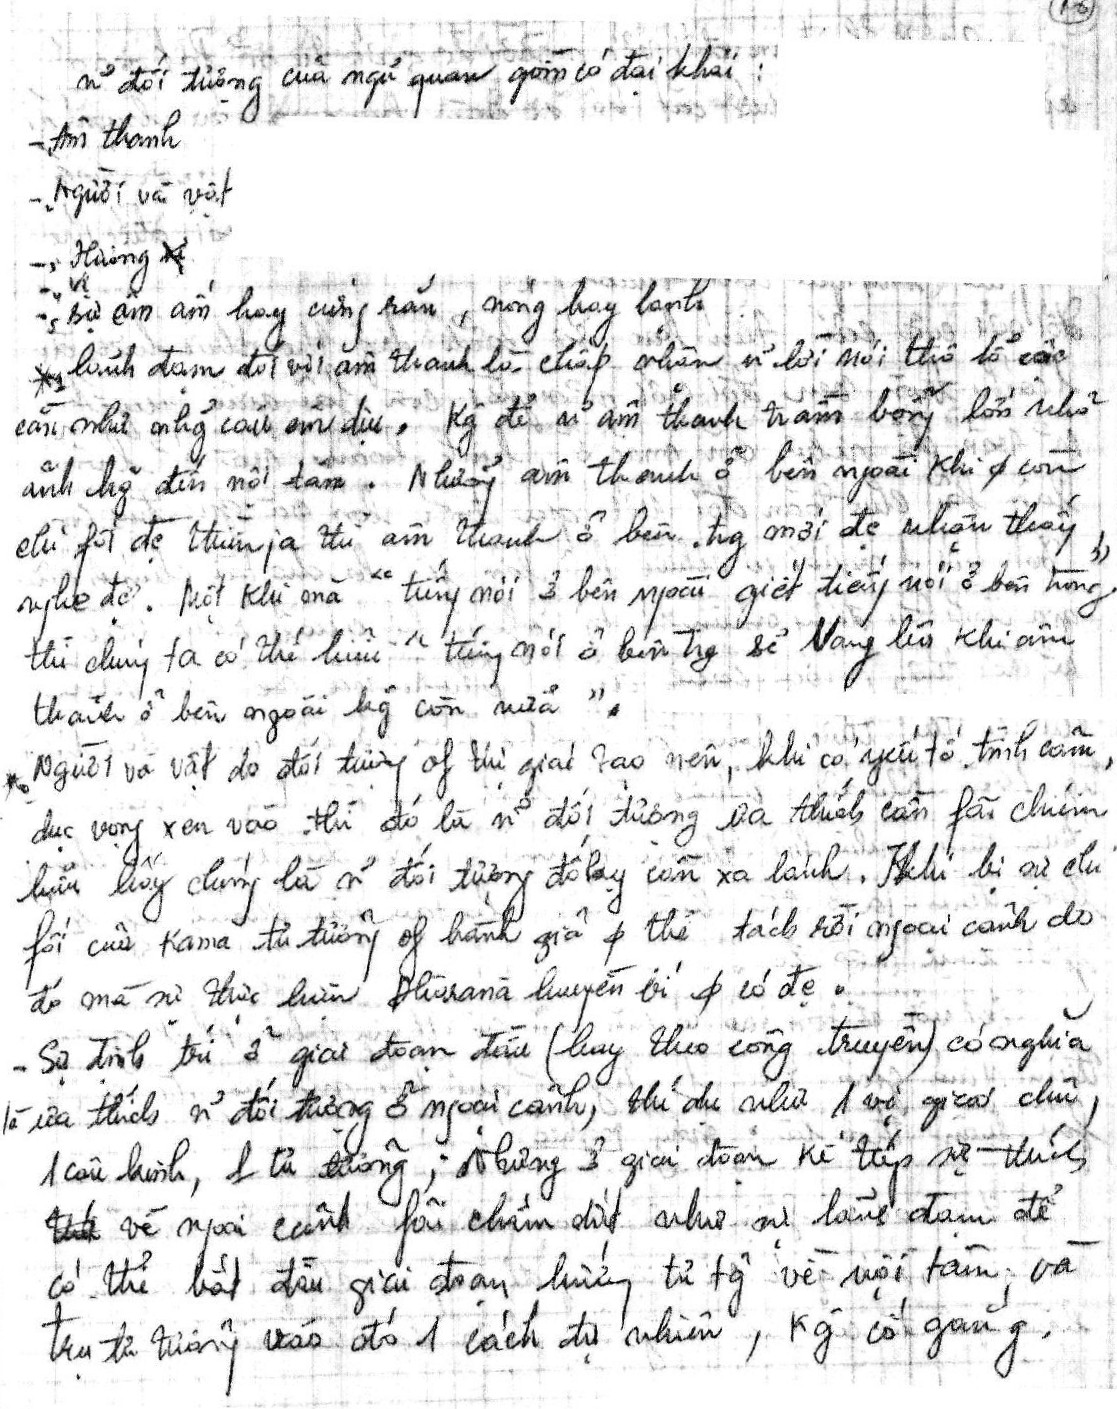 n~ đối tượng của ngũ quan gồm có đại khái :
- Âm thanh
- Người và vật
- Hương
- Vị
- Sự êm ấm hay cứng rắn, nóng hay lạnh
* lãnh đạm đối với âm thanh là chấp nhận n~ lời nói thô lỗ cộc
cằn như những câu êm dịu. Kg để n~ âm thanh trầm bổng lớn nhỏ
ảnh hg đến nội tâm. Những âm thanh ở bên ngoài khi φ còn
chi fối đc thì âm thanh ở bên trg mới đc nhận thấy
nghe đc. Một khi mà "tiếng nói ở bên ngoài giết tiếng nói ở bên trong"
thì chúng ta có thể hiểu "tiếng nói ở bên trg sẽ vang lên khi âm
thanh ở bên ngoài kg còn nữa".
* Người và vật do đối tượng of thị giác tạo nên, khi có yếu tố tình cảm,
dục vọng xen vào thì đó là n~ đối tượng ưa thích cần fải chiếm
hữu hay chúng là n~ đối tượng đáng cần xa lánh. Khi bị sự chi
fối của Kama tư tưởng of hành giả φ thể tách rời ngoại cảnh do
đó mà sự thực hiện Dharana huyền bí φ có đc.
- Sự định trí ở giai đoạn đầu (hay theo công truyền) có nghĩa
là ưa thích n~ đối tượng ở ngoại cảnh, thí dụ như 1 vị giáo chủ,
1 câu kinh, 1 tư tưởng; Nhưng ở giai đoạn kế tiếp sự thích
về ngoại cảnh fải chấm dứt như sự lãnh đạm để
có thể bắt đầu giai đoạn hướng tư tg về nội tâm, và
trụ tư tưởng vào đó 1 cách tự nhiên, Kg cố gắng.